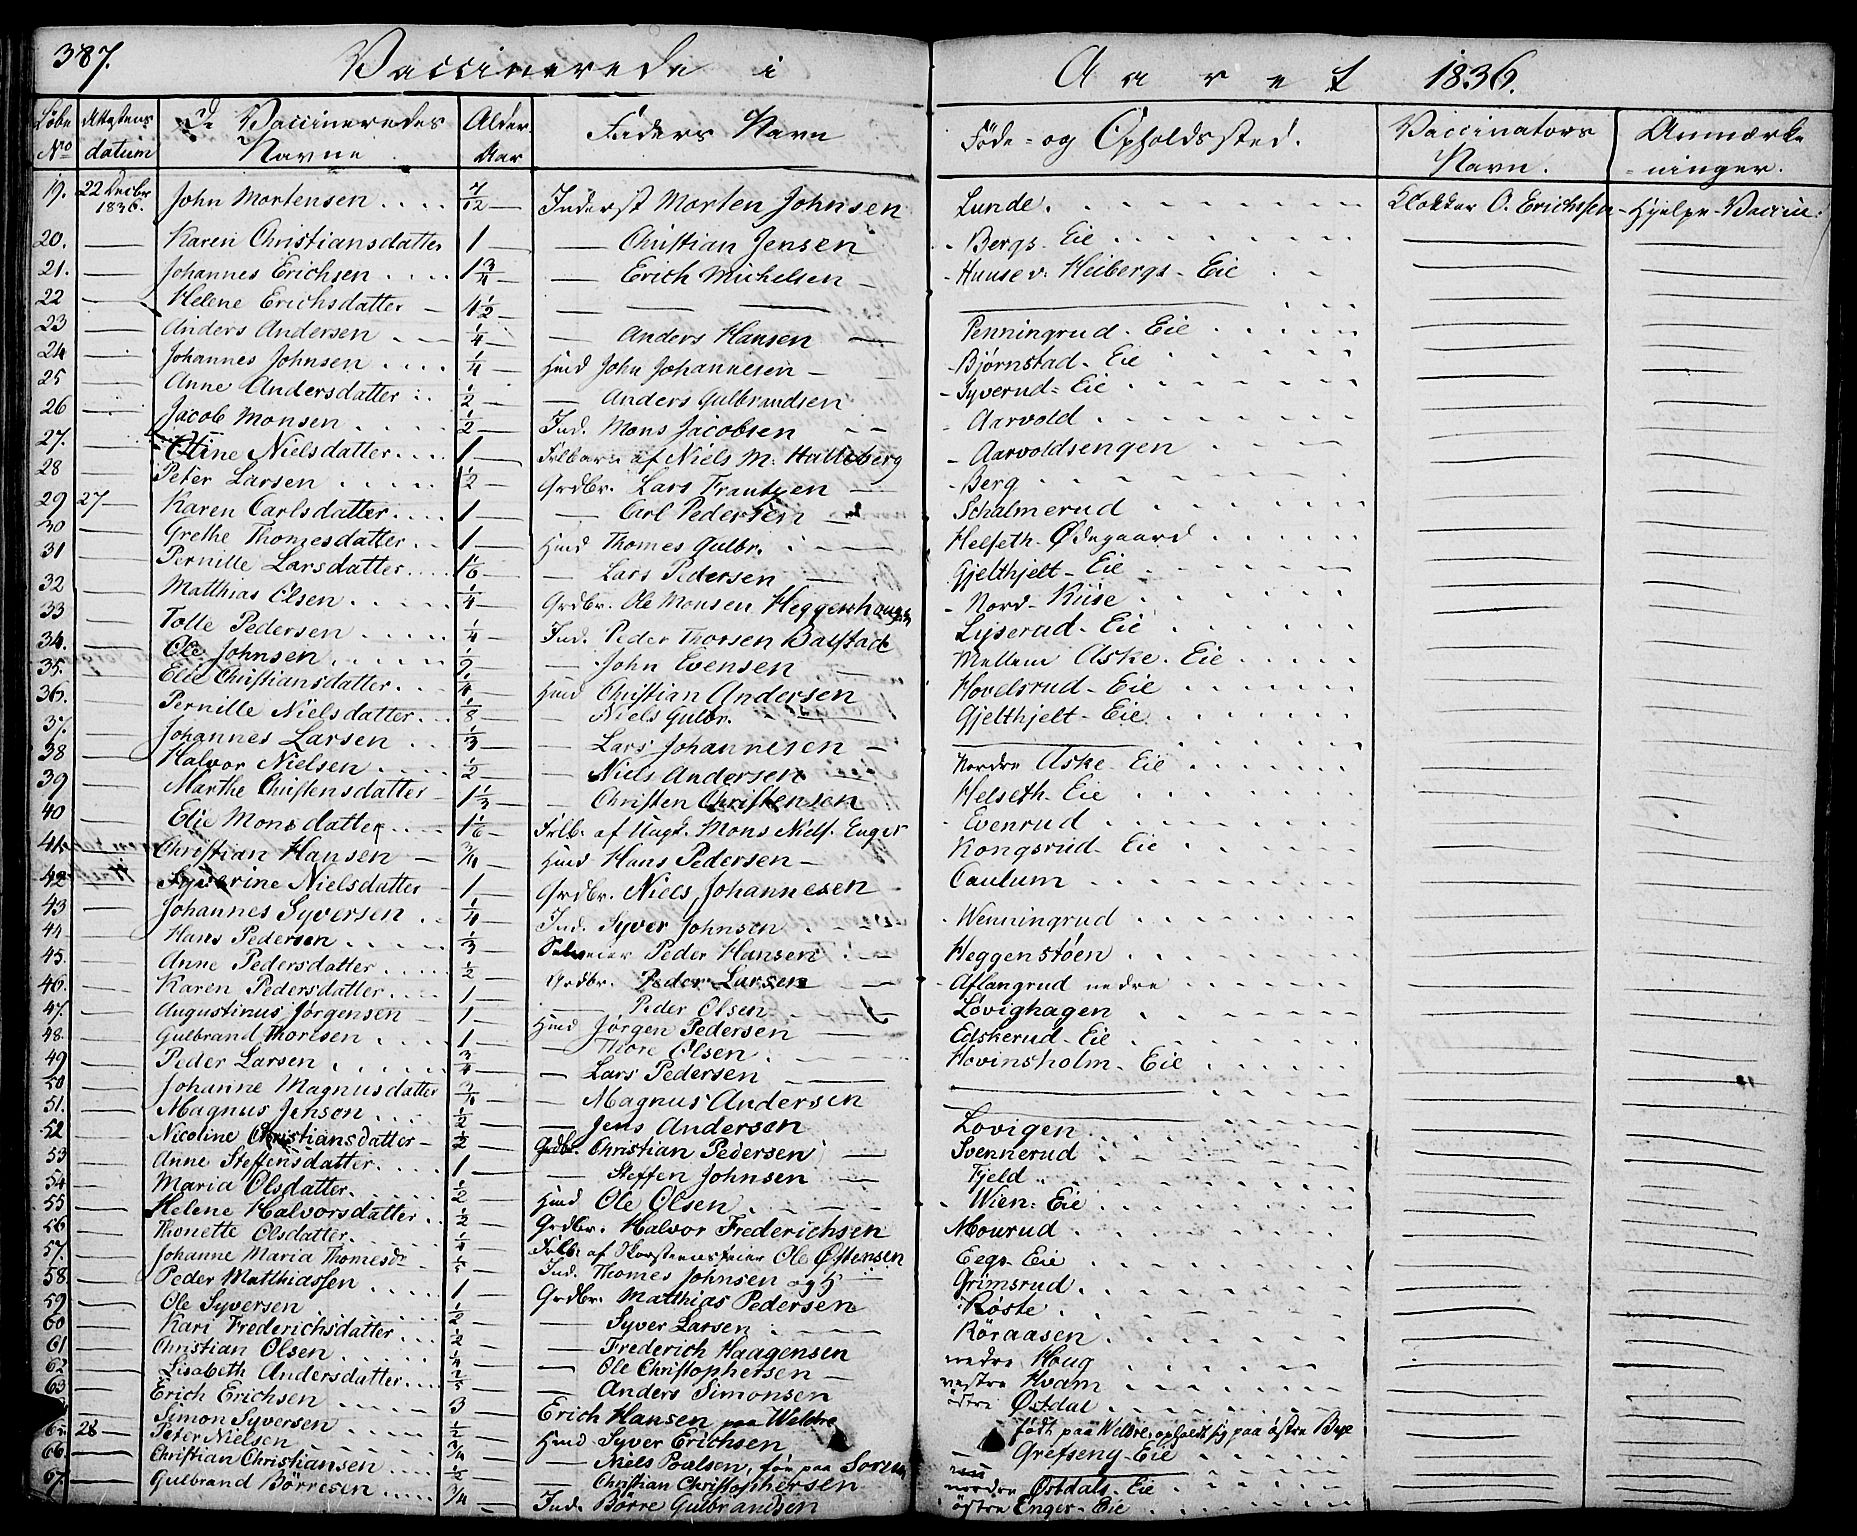 387. Vaccinerede i Aaret 1836.
Løbe No Attestens datum De Vaccineredes Navne. Alder Aar Faders Navn Føde- og Opholdssted. Vaccinators Navn. Anmærkninger.
19. 22 Decbr 1836. John Mortensen 7/12 Inderst Morten Johnsen Lunde. Klokker O. Erichsen Hjelpe-Vaccin.
20. — Karen Christiansdatter 1 — Christian Jensen Bergs-Eie
21. — Johannes Erichsen 1 3/4 — Erich Michelsen Huuse v. Heibergs-Eie
22 — Helene Erichsdatter 4 1/2 — —
23 — Anders Andersen 1/4 — Anders Hansen Penningrud-Eie
24 — Johannes Johnsen 1/4 Huusd John Johannesen Bjørnstad-Eie
25 — Anne Andersdatter 1/2 — Anders Gulbrandsen Syverud-Eie
26 — Jacob Monsen 1/2 Ind. Mons Jacobsen Aarvold
27. — Oline Nielsdatter 1 af Niels M. Aarvoldsengen
28 — Peter Larsen 1/2 Grdbr. Lars Frantzen Berg
29 27 — Karen Carlsdatter 1 — Carl Pedersen Schalmerud
30 — Grethe Thomesdatter 1 Huusd Thomes Gulbr. Helseth-Ødegaard
31 — Pernille Larsdatter 1 1/6 — Lars Pedersen Gjelthjelt-Eie
32 — Matthias Olsen 1/4 Grdbr. Ole Monsen Heggenshougen Nord-Kiise
33 — Tolle Pedersen 1/4 Ind. Peder Thorsen Balstad Lyserud-Eie
34. — Ole Johnsen 1/2 — John Evensen Mellem Aske-Eie
35. — Elie Christiansdatter 1/4 Huusd Christian Andersen Hovelsrud-Eie
36. — Pernille Nielsdatter 1/8 — Niels Gulbr. Gjelthjelt-Eie
37. — Johannes Larsen 1/3 — Lars Johannesen —
38 — Halvor Nielsen 1/2 — Niels Andersen Nordre Aske-Eie
39 — Marthe Christensdatter 1 1/3 — Christen Christensen Helseth-Eie
40 — Elie Monsdatter 1 1/6 Frlb. af Ungk. Mons Niels. Enger Evenrud
41. — Christian Hansen 3/4 Huusd Hans Pedersen Kongsrud-Eie
42 — Syverine Nielsdatter 1 Grdbr. Niels Johannesen Caulum
43 — Johannes Syversen 1/4 Ind. Syver Johnsen Wenningrud
44 — Hans Pedersen 1/3 Selveier Peder Hansen Heggenstøen
45. — Anne Pedersdatter 1/2 Grdbr. Peder Larsen Aflangrud nedre
46. — Karen Pedersdatter 1 — Peder Olsen Løvighagen
47. — Augustinus Jørgensen 1 Huusd Jørgen Pedersen Edskerud-Eie
48. — Gulbrand Thoresen 1 — Thore Olsen Hovinsholm-Eie
49 — Peder Larsen 3/4 — Lars Pedersen —
50 — Johanne Magnusdatter — Magnus Andersen —
51. — Magnus Jensen 1/2 — Jens Andersen Lovigen
52 — Nicoline Christiansdatter 1/2 Grdbr. Christian Pedersen Svennerud
53 — Anne Steffensdatter 1 — Steffen Johnsen Fjeld
54 — Maria Olsdatter 1/2 Huusd Ole Olsen Wien-Eie
55 — Helene Halvorsdatter 1/2 Grdbr. Halvor Frederichsen Mourud
56 — Thonette Olsdatter Frlb. af Skorsteensfeier Ole Østensen Eegs-Eie
57. — Johanne Maria Thomesd. Ind. Thomes Johnsen Grimsrud
58 — Peder Matthiassen 1 Grdbr. Matthias Pedersen Røste
59 — Ole Syversen 1/2 — Syver Larsen Röraasen
60 — Kari Frederichsdatter 1/2 — Frederich Haagensen nedre Houg
61 — Christian Olsen 1/4 — Ole Christophersen vestre Kvam
62 — Lisabeth Andersdatter — Anders Simonsen östre Østdal
63 — Erich Erichsen 3 Erich Hansen paa Weldre født paa Weldre, opholdt sig paa østre Bye
Simon Syversen 1/2 Huusd Syver Erichsen Grefseng-Eie
65 28 — Peter Nielsen 3/4 — Niels Poulsen —
66. — Christian Christiansen 1/2 — Christian Christophersen nordre Østdals-Eie
67. — Gulbrand Börresen 3/4 Ind. Börre Gulbrandsen östre Enger-Eie